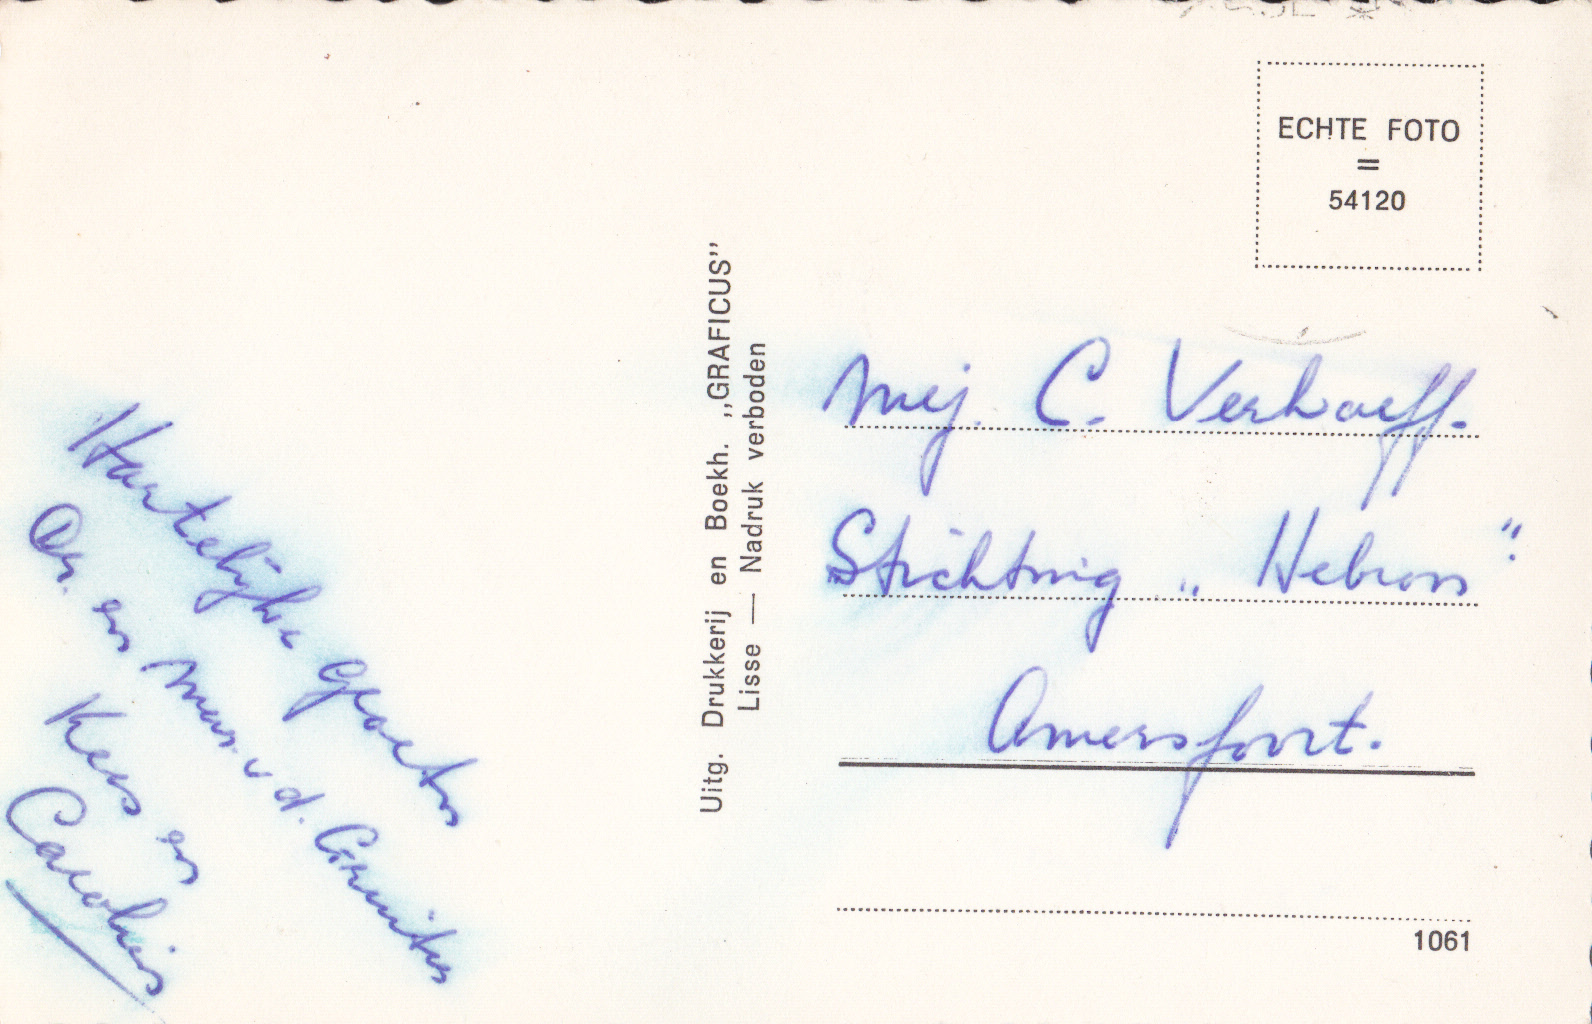 Hartelijke groeten
Dr. en Mevr. v d.
Kees en
Carolien
Uitg. Drukkerij en Boekh. „GRAFICUS”
Lisse — Nadruk verboden
ECHTE FOTO
=
54120
Mej. C. Verhoeff.
Stichting „Hebron”.
Amersfoort.
1061